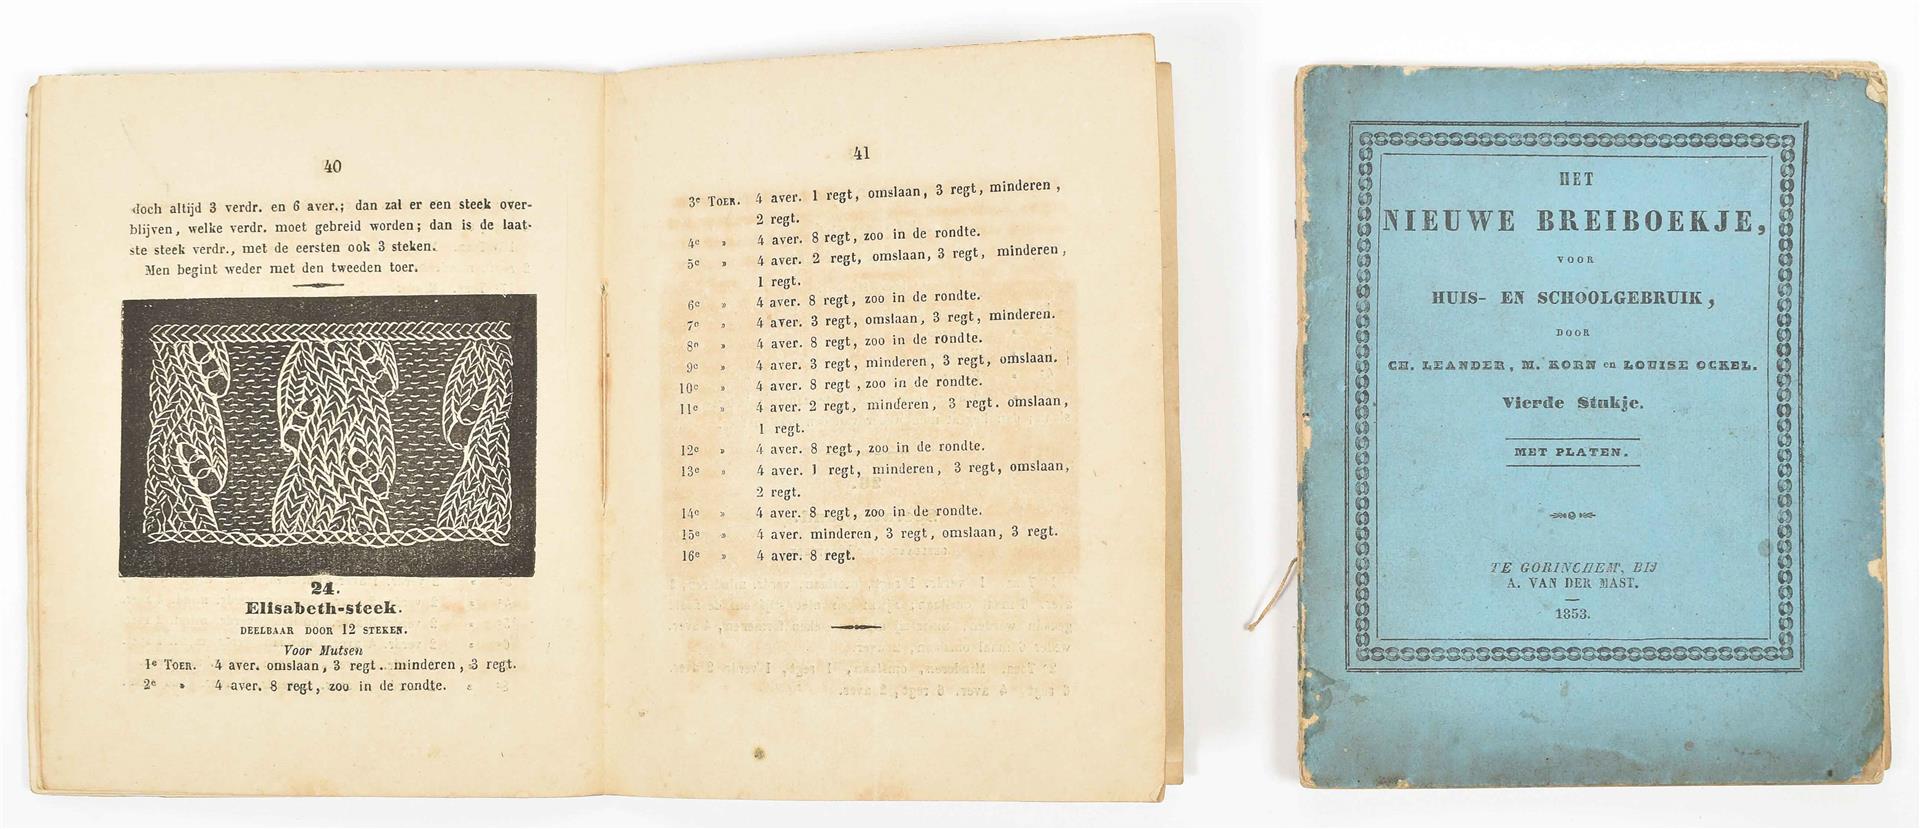 40
doch altijd 3 verdr. en 6 aver.; dan zal er een steek over-
blijven, welke verdr. moet gebreid worden; dan is de laat-
ste steek verdr., met de eersten ook 3 steken.
Men begint weder met den tweeden toer.
24.
Elisabeth-steek.
DEELBAAR DOOR 12 STEKEN.
Voor Mutsen
1e TOER. 4 aver. omslaan, 3 regt. minderen, 3 regt.
2e » 4 aver. 8 regt, zoo in de rondte.
41
3e TOER. 4 aver. 1 regt, omslaan, 3 regt, minderen,
2 regt.
4e » 4 aver. 8 regt, zoo in de rondte.
5e » 4 aver. 2 regt, omslaan, 3 regt, minderen,
1 regt.
6e » 4 aver. 8 regt, zoo in de rondte.
7e » 4 aver. 3 regt, omslaan, 3 regt, minderen.
8e » 4 aver. 8 regt, zoo in de rondte.
9e » 4 aver. 3 regt, minderen, 3 regt, omslaan.
10e » 4 aver. 8 regt, zoo in de rondte.
11e » 4 aver. 2 regt, minderen, 3 regt. omslaan,
1 regt.
12e » 4 aver. 8 regt, zoo in de rondte.
13e » 4 aver. 1 regt, minderen, 3 regt, omslaan,
2 regt.
14e » 4 aver. 8 regt, zoo in de rondte.
15e » 4 aver. minderen, 3 regt, omslaan, 3 regt.
16e » 4 aver. 8 regt.
HET
NIEUWE BREIBOEKJE,
VOOR
HUIS- EN SCHOOLGEBRUIK,
DOOR
CH. LEANDER, M. KORN en LOUISE OCKEL.
Vierde Stukje.
MET PLATEN.
TE GORINCHEM, BIJ
A. VAN DER MAST.
1853.